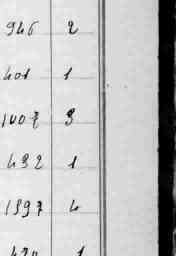 946 2
401 1
1007 3
432 1
1397 4
420 1